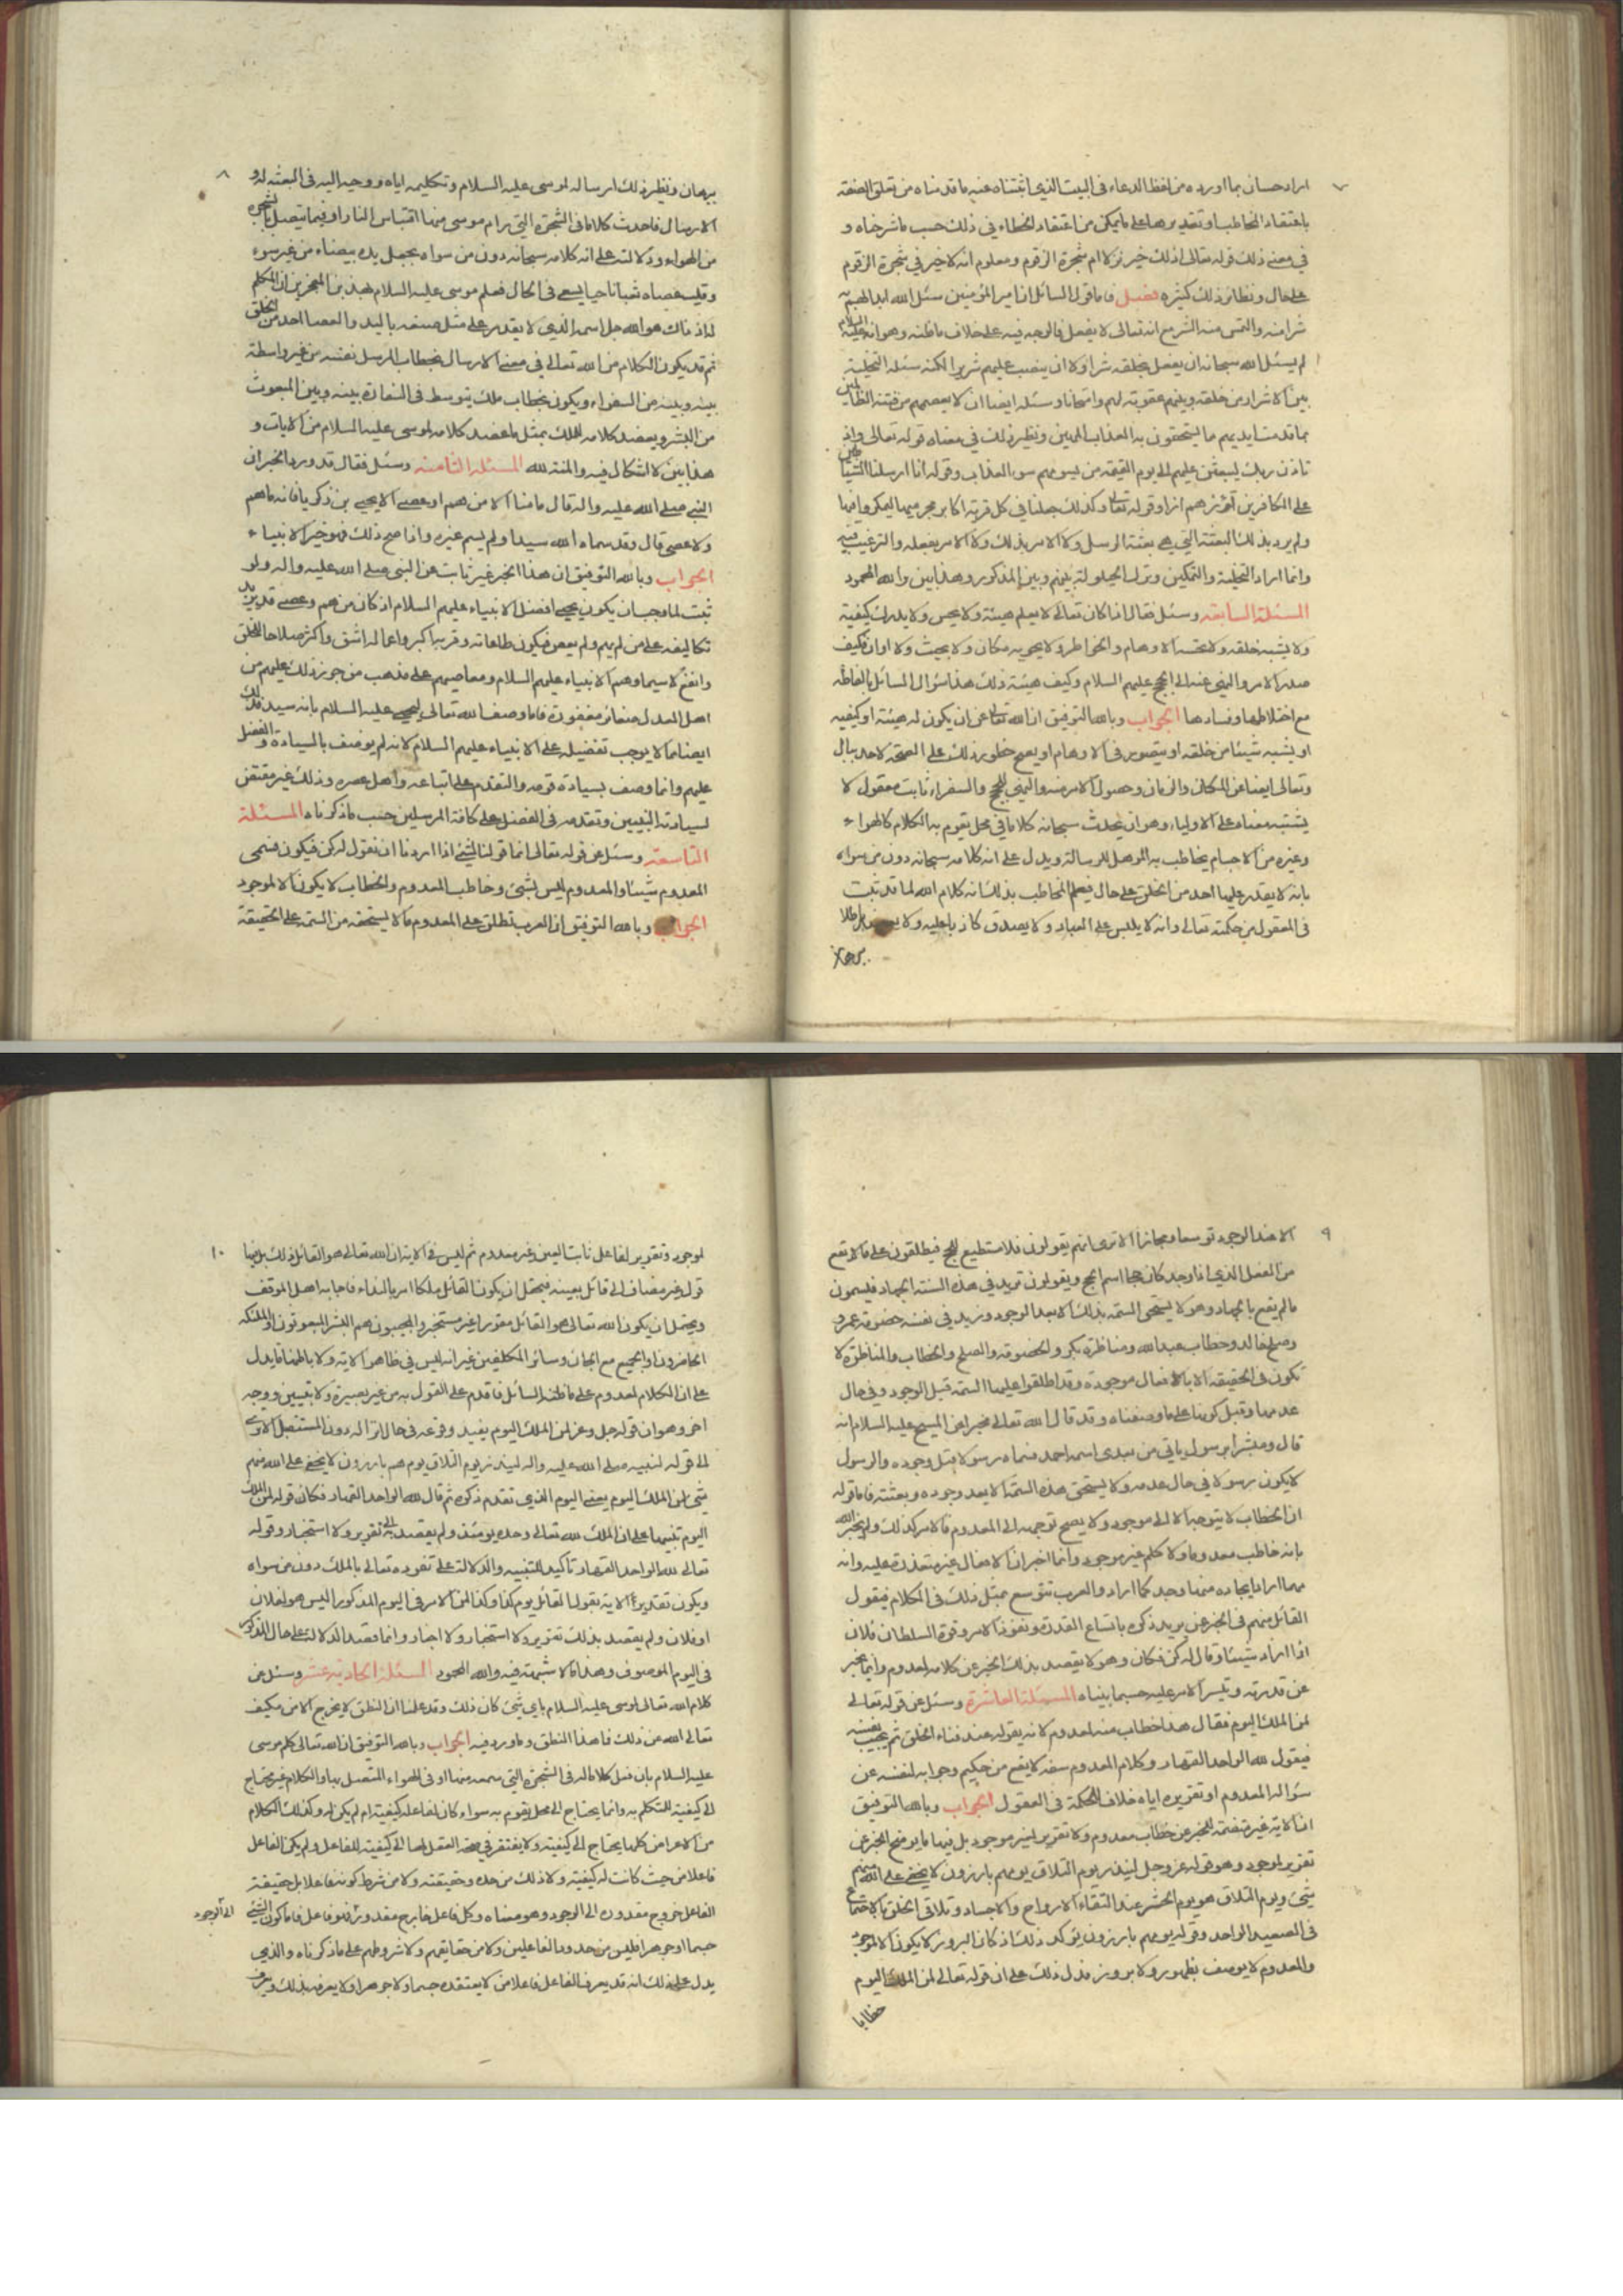 ٧
اراد حسان بما اورده من لفظ الدعاء فى البيت الذي اثبتناه عنه ما قدمناه من تعلق الصفة
باعتقاد المخاطب او تقديرها على ما يمكن من اعتقاد الخطاء في ذلك حسب ما شرحناه و
في معنى ذلك قوله تعالى اذلك خير نزلا ام شجرة الزقوم ومعلوم انه لا خير في شجرة الزقوم
على حال ونظائر ذلك كثيره فصل فاما قول السائل ان امير المؤمنين سئل الله ابدالهم به
شرا منه والتمس منه الشر مع انه تعالى لا يفعل فالوجه فيه على خلاف ما ظنه وهو انه عليه السلام
لم يسئل الله سبحانه ان يفعل بخلقه شرا ولا ان ينصب عليهم شريرا لكنه سئله التخلية
بين الاشرار من خلقه وبينهم عقوبة لهم وامتحانا وسئله ايضا ان لا يعصمهم من فتنة الظالمين
بما قدمت ايديهم مما يستحقون به العذاب المهين ونظير ذلك في معناه قوله تعالى واذ
تاذن ربك ليبعثن عليهم الى يوم القيمة من يسومهم سوء العذاب وقوله انا ارسلنا الشياطين
على الكافرين تؤزهم ازا وقوله تعالى وكذلك جعلنا في كل قرية اكابر مجرميها ليمكروا فيها
ولم يرد بذلك البعثة التي هي بعثة الرسل ولا الامر بذلك ولا الامر بفعله والترغيب فيه
وانما اراد التخلية والتمكين وترك الحيلولة بينهم وبين المذكور وهذا بين والله المحمود
المسئلة السابعة وسئل فقال اذا كان تعالى لا يعلم هيئة ولا يحس ولا يدرك كيفية
ولا يشبه خلقه ولا تحسه الاوهام والخواطر ولا يحويه مكان ولا بحيث ولا اوان فكيف
صدر الامر والنهي عنه الى الحجج عليهم السلام وكيف هيئة ذلك هذا سؤال السائل بالفاظه
مع اختلاطها وفسادها الجواب وبالله التوفيق ان الله تعالى عن ان يكون له هيئة او كيفية
او يشبه شيئا من خلقه او يتصور في الاوهام او يصح خطور ذلك على الصحة لاحد ببال
وتعالى ايضا عن المكان والزمان وحصول الامر منه والنهي للحجج والسفراء ثابت معقول لا
يشتبه معناه على الاولياء وهو ان يحدث سبحانه كلاما في محل يقوم به الكلام كالهواء
وغيره من الاجسام يخاطب به المؤهل للرسالة ويدل على انه كلامه سبحانه دون من سواه
بانه لا يقدر عليها احد من الخلق على حال فيعلم المخاطب بذلك انه كلام الله لما قد ثبت
فى المعقول من حكمته تعالى وانه لا يلبس على العباد ولا يصدق كاذبا عليه ولا باطلا
ببرهان
٨
ببرهان ونظير ذلك ارساله لموسى عليه السلام وتكليمه اياه ووحيه اليه فى البعثة له و
الارسال فاحدث كلاما فى الشجرة التي رام موسى منها اقتباس النار او فيما يتصل بالشجرة
من الهواء ودلالته على انه كلامه سبحانه دون من سواه بجعل يده بيضاء من غير سوء
وقلب عصاه ثعبانا حيا يسعى في الحال فعلم موسى عليه السلام بهذين المعجزين ان المكلم
له اذ ذاك هو الله جل اسمه الذي لا يقدر على مثل صنعه باليد والعصا احد من الخلق
ثم قد يكون الكلام من الله تعالى في معنى الارسال بخطاب المرسل نفسه من غير واسطة
بينه وبينه من السفراء ويكون بخطاب ملك يتوسط فى السفارة بينه وبين المبعوث
من البشر ويعضد كلامه للملك بمثل ما عضد كلامه لموسى عليه السلام من الايات و
هذا بين لا اشكال فيه والمنة لله المسئلة الثامنة وسئل فقال قد ورد الخبر ان
النبي صلى الله عليه واله قال ما منا الا من هم او عصى الا يحيى بن ذكريا فانه ما هم
ولا عصى قال وقد سماه الله سيدا ولم يسم غيره واذا صح ذلك فهو خير الانبياء
الجواب وبالله التوفيق ان هذا الخبر غير ثابت عن النبي صلى الله عليه واله ولو
ثبت لما وجب ان يكون يحيى افضل الانبياء عليهم السلام اذ كان من هم وعصى قد يزيد
تكاليفه على من لم يهم ولم يعص فيكون طاعاته وقربه اكبر واعماله اشق واكثر صلاحا للخلق
وانفع لا سيما وهم الانبياء عليهم السلام ومعاصيهم على مذهب من جوز ذلك عليهم من
اهل العدل صغائر مغفورة فاما وصف الله تعالى ليحيى عليه السلام بانه سيد فذلك
ايضا مما لا يوجب تفضيله على الانبياء عليهم السلام لانه لم يوصف بالسيادة والفضل
عليهم وانما وصف بسيادة قومه والتقدم على اتباعه واهل عصره وذلك غير مقتض
لسيادته النبيين وتقدمه فى الفضل على كافة المرسلين حسب ما ذكرناه المسئلة
التاسعة وسئل عن قوله تعالى انما قولنا لشئ اذا اردناه ان نقول له كن فيكون فسمى
المعدوم شيئا والمعدوم ليس بشئ وخاطب المعدوم والخطاب لا يكون الا لموجود
الجواب وبالله التوفيق ان العرب تطلق على المعدوم ما لا يستحقه من السمة على الحقيقة
٩
الا عند الوجود توسعا ومجازا الا ترى انهم يقولون فلا مستطيع للحج فيطلقون على ما لا يقع
من الفعل الذي اذا وجد كان حجا اسم الحج ويقولون نريد في هذه السنة الجهاد فيسمون
ما لم يقع بالجهاد وهو لا يستحق السمة بذلك الا بعد الوجود ونريد في نفسه خصومة عمرو
وصلح خالد وخطاب عبد الله ومناظرة بكر والخصومة والصلح والخطاب والمناظرة لا
تكون فى الحقيقة الا بالافعال موجودة وقد اطلقوا عليها السمة قبل الوجود وفي حال
عدمها وقبل كونها على ما وصفناه وقد قال الله تعالى مخبرا عن المسيح عليه السلام انه
قال ومبشرا برسول ياتي من بعدى اسمه احمد فسماه رسولا قبل وجوده والرسول
لا يكون رسولا في حال عدمه ولا يستحق هذه السمة الا بعد وجوده وبعثته فاما قوله
ان الخطاب لا يتوجه الا الى موجود ولا يصح توجهه الى المعدوم فالامر كذلك ولم يخبر الله
بانه خاطب معدوما ولا كلم غير موجود وانما اخبر ان الافعال غير متعذرة عليه وانه
مهما اراد ايجاده منها وجد كما اراد والعرب تتوسع بمثل ذلك فى الكلام فيقول
القائل منهم فى الخبر عمن يريد ذكره باتساع القدرة ونفوذ الامر وقوة السلطان فلان
اذا اراد شيئا وقال له كن فكان وهو لا يقصد بذلك الخبر عن كلامه لمعدوم وانما يخبر
عن قدرته وتيسر الامر عليه حسبما بيناه المسئلة العاشرة وسئل عن قوله تعالى
لمن الملك اليوم فقال هذا خطاب منه لمعدوم لانه يقوله عند فناء الخلق ثم يجيب نفسه
فيقول لله الواحد القهار وكلام المعدوم سفه لا يقع من حكيم وجوابه لنفسه عن
سؤاله المعدوم او تقريره اياه خلاف الحكمة فى العقول الجواب وبالله التوفيق
ان الاية غير متضمنة للخبر عن خطاب معدوم ولا تقرير لغير موجود بل فيها ما يوضح الخبر عن
تقرير لموجود وهو قوله عز وجل لينذر يوم التلاق يوم هم بارزون لا يخفى على الله منهم
شئ ويوم التلاق هو يوم الحشر عند التقاء الارواح والاجساد وتلاقي الخلق بالاجتماع
فى الصعيد الواحد وقوله يوم هم بارزون يؤكد ذلك اذ كان البروز لا يكون الا لموجود
والمعدوم لا يوصف بظهور ولا بروز فدل ذلك على ان قوله تعالى لمن الملك اليوم
خطابا
١٠
لموجود وتقرير لفاعل ثابت العين وغير معدوم ثم ليس في الاية ان الله تعالى هو القائل ذلك بل فيها
قول غير مضاف الى قائل بعينه فيحتمل ان يكون القائل ملكا امر بالنداء فاجابه اهل الموقف
ويحتمل ان يكون الله تعالى هو القائل مقررا غير مستخبر والمجيبون هم البشر المبعوثون او الملئكة
الحاضرون او الجميع مع الجان وسائر المكلفين غير انه ليس في ظاهر الاية ولا باطنها ما يدل
على ان الكلام لمعدوم على ما ظنه السائل فاقدم على القول به من غير بصيرة ولا تبيين ووجه
اخر وهو ان قوله جل وعز لمن الملك اليوم يفيد وقوعه فى حال انزاله دون المستقبل الا ترى
الى قوله لنبيه صلى الله عليه واله لينذر يوم التلاق يوم هم بارزون لا يخفى على الله منهم
شئ لمن الملك اليوم يعني اليوم الذي تقدم ذكره ثم قال لله الواحد القهار فكان قوله لمن الملك
اليوم تنبيها على ان الملك لله تعالى وحده يومئذ ولم يقصد به الى تقرير ولا استخبار وقوله
تعالى لله الواحد القهار تاكيد للتنبيه والدلالة على تفرده تعالى بالملك دون من سواه
ويكون تقدير الاية يقول القائل يوم كذا وكذا لمن الامر فى اليوم المذكور اليس هو لفلان
او فلان ولم يقصد بذلك تقريرا ولا استخبارا ولا اخبارا وانما قصد الدلالة على حال المذكور
فى اليوم الموصوف وهذا ما لا شبهة فيه والله المحمود المسئلة الحادية عشر وسئل عن
كلام الله تعالى لموسى عليه السلام باي شئ كان ذلك وقد علمنا ان النطق لا يخرج الا من مكيف
تعالى الله عن ذلك فما هذا النطق وما ورد فيه الجواب وبالله التوفيق ان الله تعالى كلم موسى
عليه السلام بان فعل كلاما له فى الشجرة التي سمعه منها او فى الهواء المتصل بها والكلام غير محتاج
الى كيفية للمتكلم به وانما يحتاج الى محل يقوم به سواء كان لفاعله كيفية ام لم يكن له وكذلك الكلام
من الاعراض كلها يحتاج الى كيفية ولا يفتقر في صحة العقل لها الى كيفية للفاعل ولم يكن الفاعل
فاعلا من حيث كانت له كيفية ولا ذلك من حده وحقيقته ولا من شرط كونه فاعلا بل حقيقة
الفاعل خروج مقدوره الى الوجود وهو معناه وكل فاعل خارج مقدوره فهو فاعل فاما كون الشئ
الى الوجود
جسما او جوهرا فليس من حدود الفاعلين ولا من حقائقهم ولا شروطهم على ما ذكرناه والذي
يدل على ذلك انه قد يعرف الفاعل فاعلا من لا يعتقده جسما ولا جوهرا ولا يعرفه بذلك ويعرف